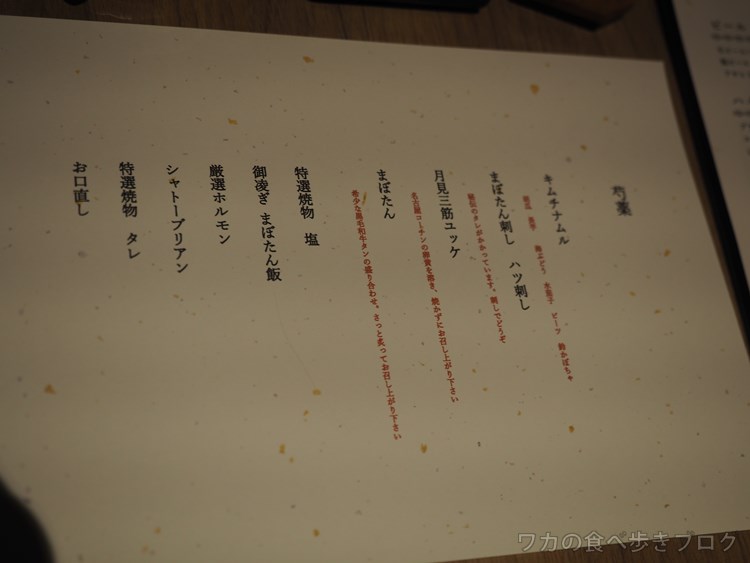 芍薬
キムチナムル
海ぶどう 水茄子 ビーツ 鈴かぼちゃ
まぼたん刺し ハツ刺し
秘伝のタレがかかっています。刺しでどうぞ
月見三筋ユッケ
名古屋コーチンの卵黄を溶き、焼かずにお召し上がり下さい
まぼたん
希少な黒毛和牛タンの盛り合わせ。さっと炙ってお召し上がり下さい
特選焼物 塩
御凌ぎ まぼたん飯
厳選ホルモン
シャトーブリアン
特選焼物 タレ
お口直し
ワカの食べ歩きブログ